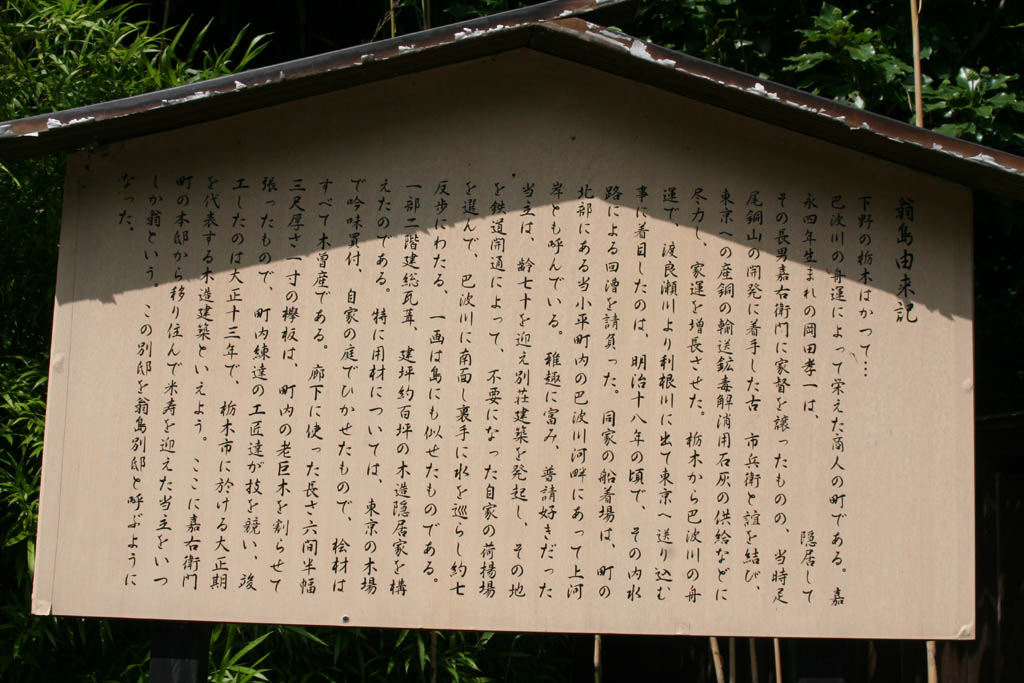 翁島由来記
下野の栃木はかつて…
巴波川の舟運によって栄えた商人の町である。嘉
永四年生まれの岡田孝一は、 隠居して
その長男嘉右衛門に家督を譲ったものの、当時足
尾銅山の開発に着手した古 市兵衛と誼を結び、
東京への産銅の輸送鉱毒解消用石灰の供給などに
尽力し、家運を増長させた。栃木から巴波川の舟
運で、渡良瀬川より利根川に出て東京へ送り込む
事に着目したのは、明治十八年の頃で、その内水
路による回漕を請負った。同家の船着場は、町の
北部にある当小平町内の巴波川河畔にあって上河
岸とも呼んでいる。雅趣に富み、普請好きだった
当主は、齢七十を迎え別荘建築を発起し、その地
を鉄道開通によって、不要になった自家の荷揚場
を選んで、巴波川に南面し裏手に水を巡らし約七
反歩にわたる、一画は島にも似せたものである。
一部二階建総瓦葺、建坪約百坪の木造隠居家を構
えたのである。特に用材については、東京の木場
で吟味買付、自家の庭でひかせたもので、桧材は
すべて木曽産である。廊下に使った長さ六間半幅
三尺厚さ一寸の欅板は、町内の老巨木を割らせて
張ったもので、町内練達の工匠達が技を競い、竣
工したのは大正十三年で、栃木市に於ける大正期
を代表する木造建築といえよう。ここに嘉右衛門
町の本邸から移り住んで米寿を迎えた当主をいつ
しか翁という。この別邸を翁島別邸と呼ぶように
なった。